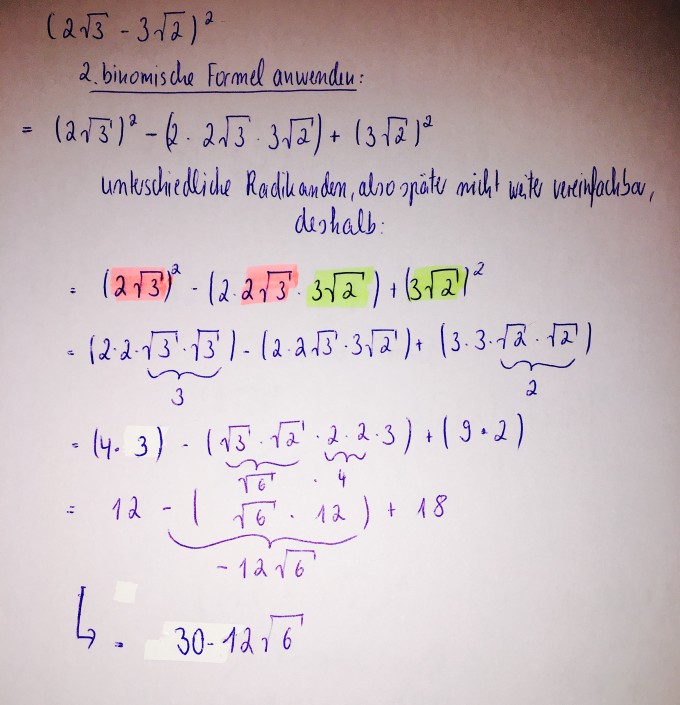 (2√3 - 3√2)²
2. binomische Formel anwenden:
= (2√3)² - (2 · 2√3 · 3√2) + (3√2)²
unterschiedliche Radikanden, also später nicht weiter vereinfachbar,
deshalb:
= (2√3)² - (2 · 2√3 · 3√2) + (3√2)²
= (2·2·√3·√3) - (2·2√3·3√2) + (3·3·√2·√2)
3 2
= (4·3) - (√3·√2·2·2·3) + (9·2)
√6 · 4
= 12 - (√6 · 12) + 18
-12√6
↳ = 30-12√6